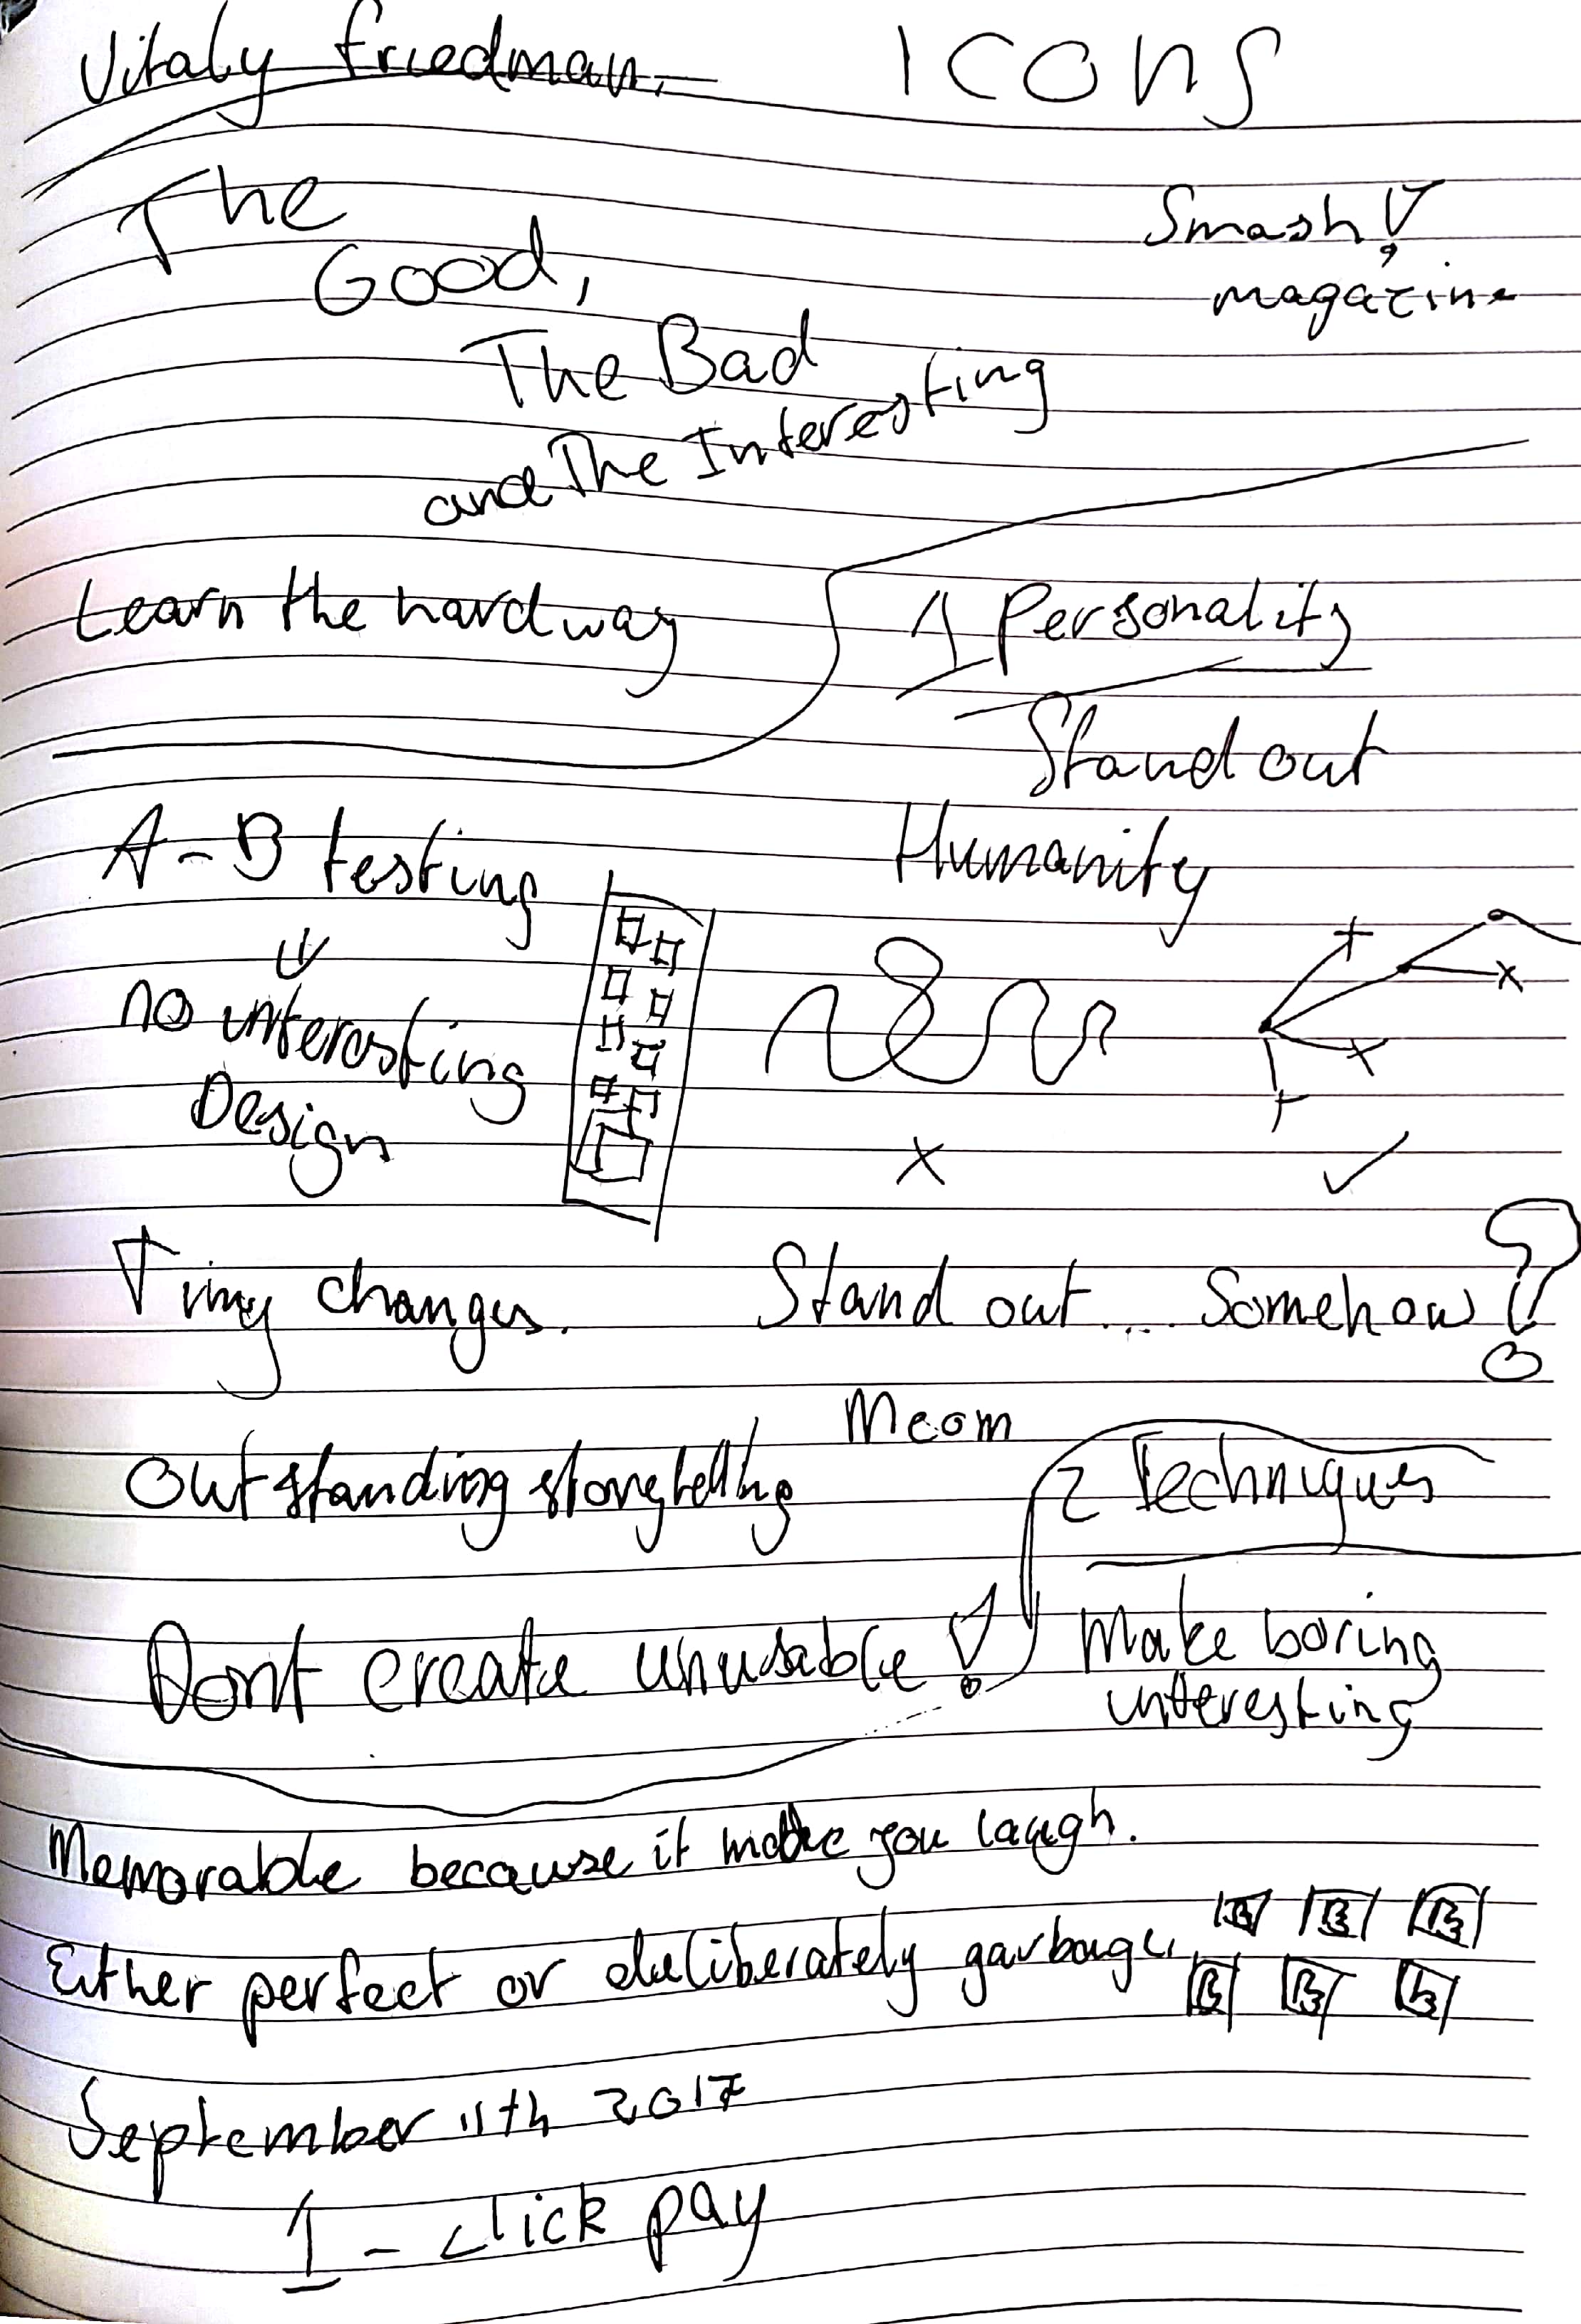 Vitaly Friedman.
ICONS
The
Good,
The Bad
and The Interesting
Smash!
magazine
Learn the hard way
1 Personality
Stand out
Humanity
A-B testing
no interesting
Design
x
✓
Tiny changes.
Stand out.... Somehow?
Outstanding storytelling
2 Techniques
Dont create unusable!
Make boring
interesting
Memorable because it make you laugh.
Either perfect or deliberately garbage.
September 11th 2017
1 - click pay